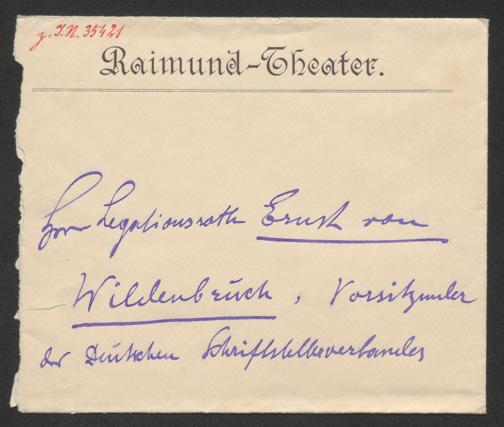 z. I.N. 35421
Raimund-Theater.
Herrn Legationsrath Ernst von
Wildenbruch, Vorsitzender
des Deutschen Schriftstellerverbandes